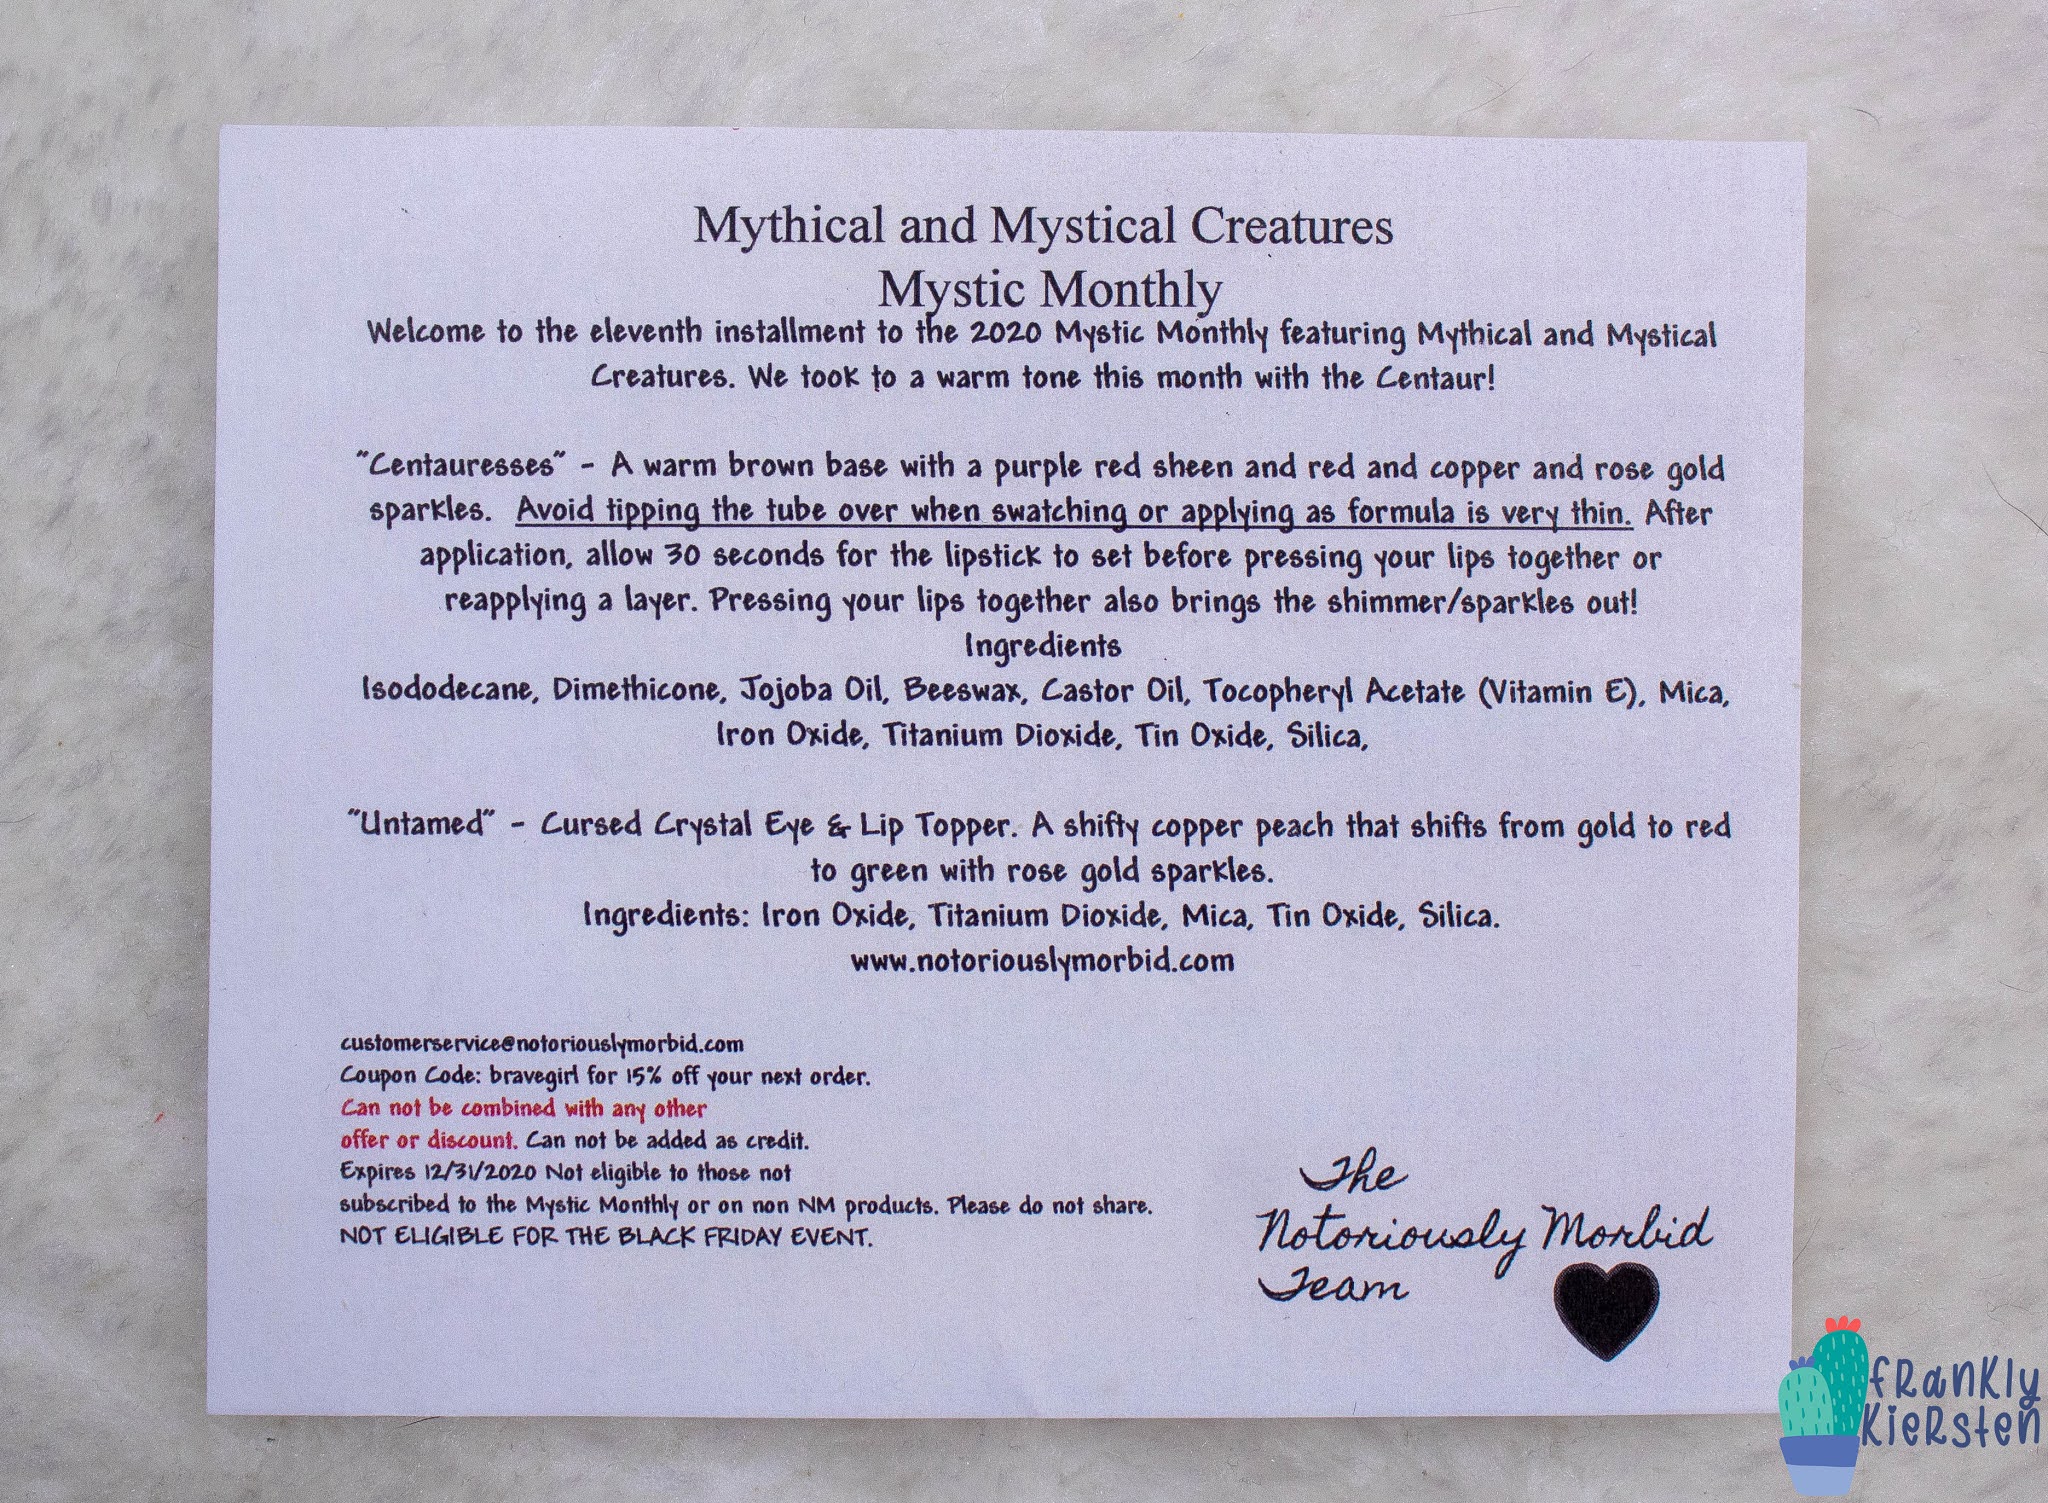 Mythical and Mystical Creatures
Mystic Monthly
Welcome to the eleventh installment to the 2020 Mystic Monthly featuring Mythical and Mystical
Creatures. We took to a warm tone this month with the Centaur!
"Centauresses" - A warm brown base with a purple red sheen and red and copper and rose gold
sparkles. Avoid tipping the tube over when swatching or applying as formula is very thin. After
application, allow 30 seconds for the lipstick to set before pressing your lips together or
reapplying a layer. Pressing your lips together also brings the shimmer/sparkles out!
Ingredients
Isododecane, Dimethicone, Jojoba Oil, Beeswax, Castor Oil, Tocopheryl Acetate (Vitamin E), Mica,
Iron Oxide, Titanium Dioxide, Tin Oxide, Silica,
"Untamed" - Cursed Crystal Eye & Lip Topper. A shifty copper peach that shifts from gold to red
to green with rose gold sparkles.
Ingredients: Iron Oxide, Titanium Dioxide, Mica, Tin Oxide, Silica.
www.notoriouslymorbid.com
customerservice@notoriouslymorbid.com
Coupon Code: bravegirl for 15% off your next order.
Can not be combined with any other
offer or discount. Can not be added as credit.
Expires 12/31/2020 Not eligible to those not
subscribed to the Mystic Monthly or on non NM products. Please do not share.
NOT ELIGIBLE FOR THE BLACK FRIDAY EVENT.
The
Notoriously Morbid
Team
fRanKly
KieRsten